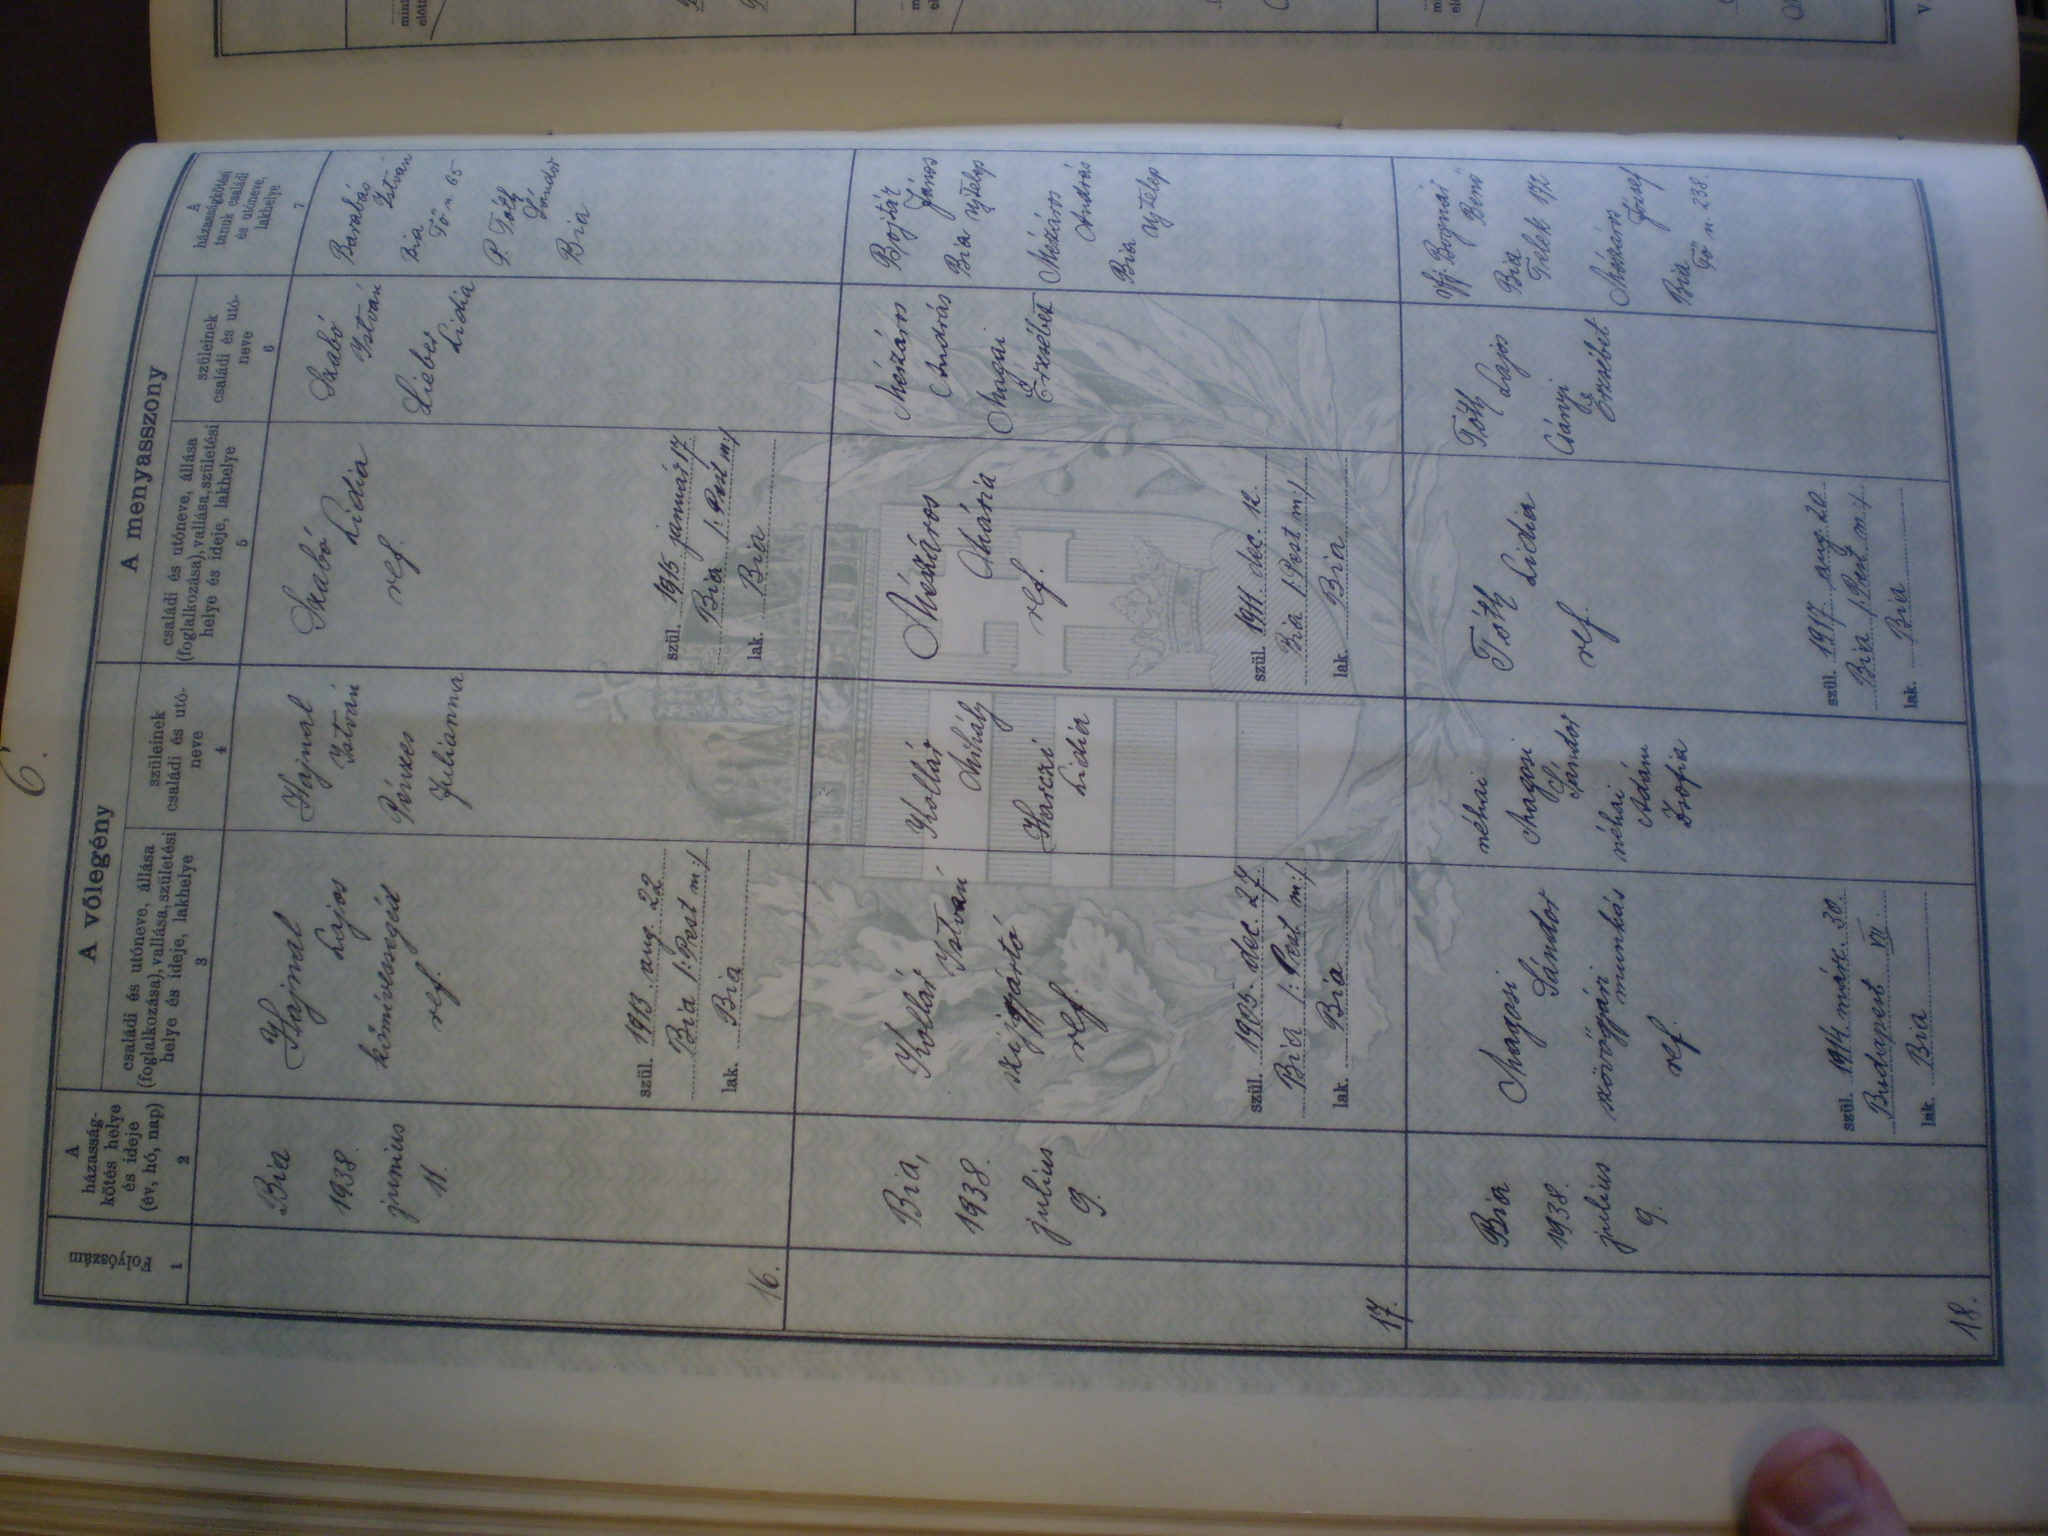 6.
Folyószám
1
A
házasság-
kötés helye
és ideje
(év, hó, nap)
2
A vőlegény
családi és utóneve, állása
(foglalkozása), vallása, születési
helye és ideje, lakhelye
3
szüleinek
családi és utó-
neve
4
A menyasszony
családi és utóneve, állása
(foglalkozása), vallása, születési
helye és ideje, lakhelye
5
szüleinek
családi és utó-
neve
6
A
házasságkötési
tanuk családi
és utóneve,
lakhelye
7
16.
Bia
1938.
junius
11.
Hajnal
Lajos
kőművessegéd
ref.
szül. 1913. aug. 22
Bia /:Pest m:/
lak. Bia
Hajnal
István
Pénzes
Julianna
Szabó
Lidia
ref.
szül. 1915 január 17
Bia /:Pest m:/
lak. Bia
Szabó
István
Lieber
Lidia
Barabás
István
Bia
Fő u. 65
P. Tóth
Sándor
Bia
17.
Bia,
1938.
julius
9.
Kollár
István
szíjgyártó
ref.
szül. 1905. dec. 27.
Bia /: Pest m:/
lak. Bia
Kollár
Mihály
Karczai
Lidia
Mészáros
Mária
ref.
szül. 1911. dec. 12.
Bia /:Pest m:/
lak. Bia
Mészáros
András
Magai
Erzsébet
Bojtár
János
Bia ujtelep
Mészáros
András
Bia
ujtelep
18.
Bia
1938.
julius
9.
Magosi
Sándor
szövőgyári
munkás
ref.
szül. 1914. márc. 30.
Budapest VII.
lak. Bia
néhai
Magosi
Sándor
néhai
Ádám
Zsófia
Tóth
Lidia
ref.
szül. 1917. aug. 20.
Bia /:Pest m:/
lak. Bia
Tóth
Lajos
Csányi
Erzsébet
Ifj. Bognár
Benő
Bia
Telek 172
Mészáros
József
Bia
Fő u. 238.